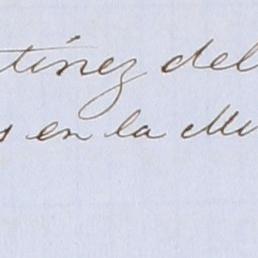 tinez del
s en la Mi